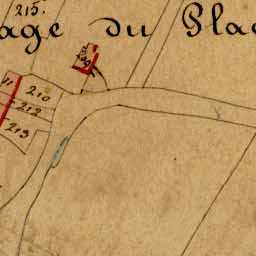 215.
age du Pla
11
210
212
213